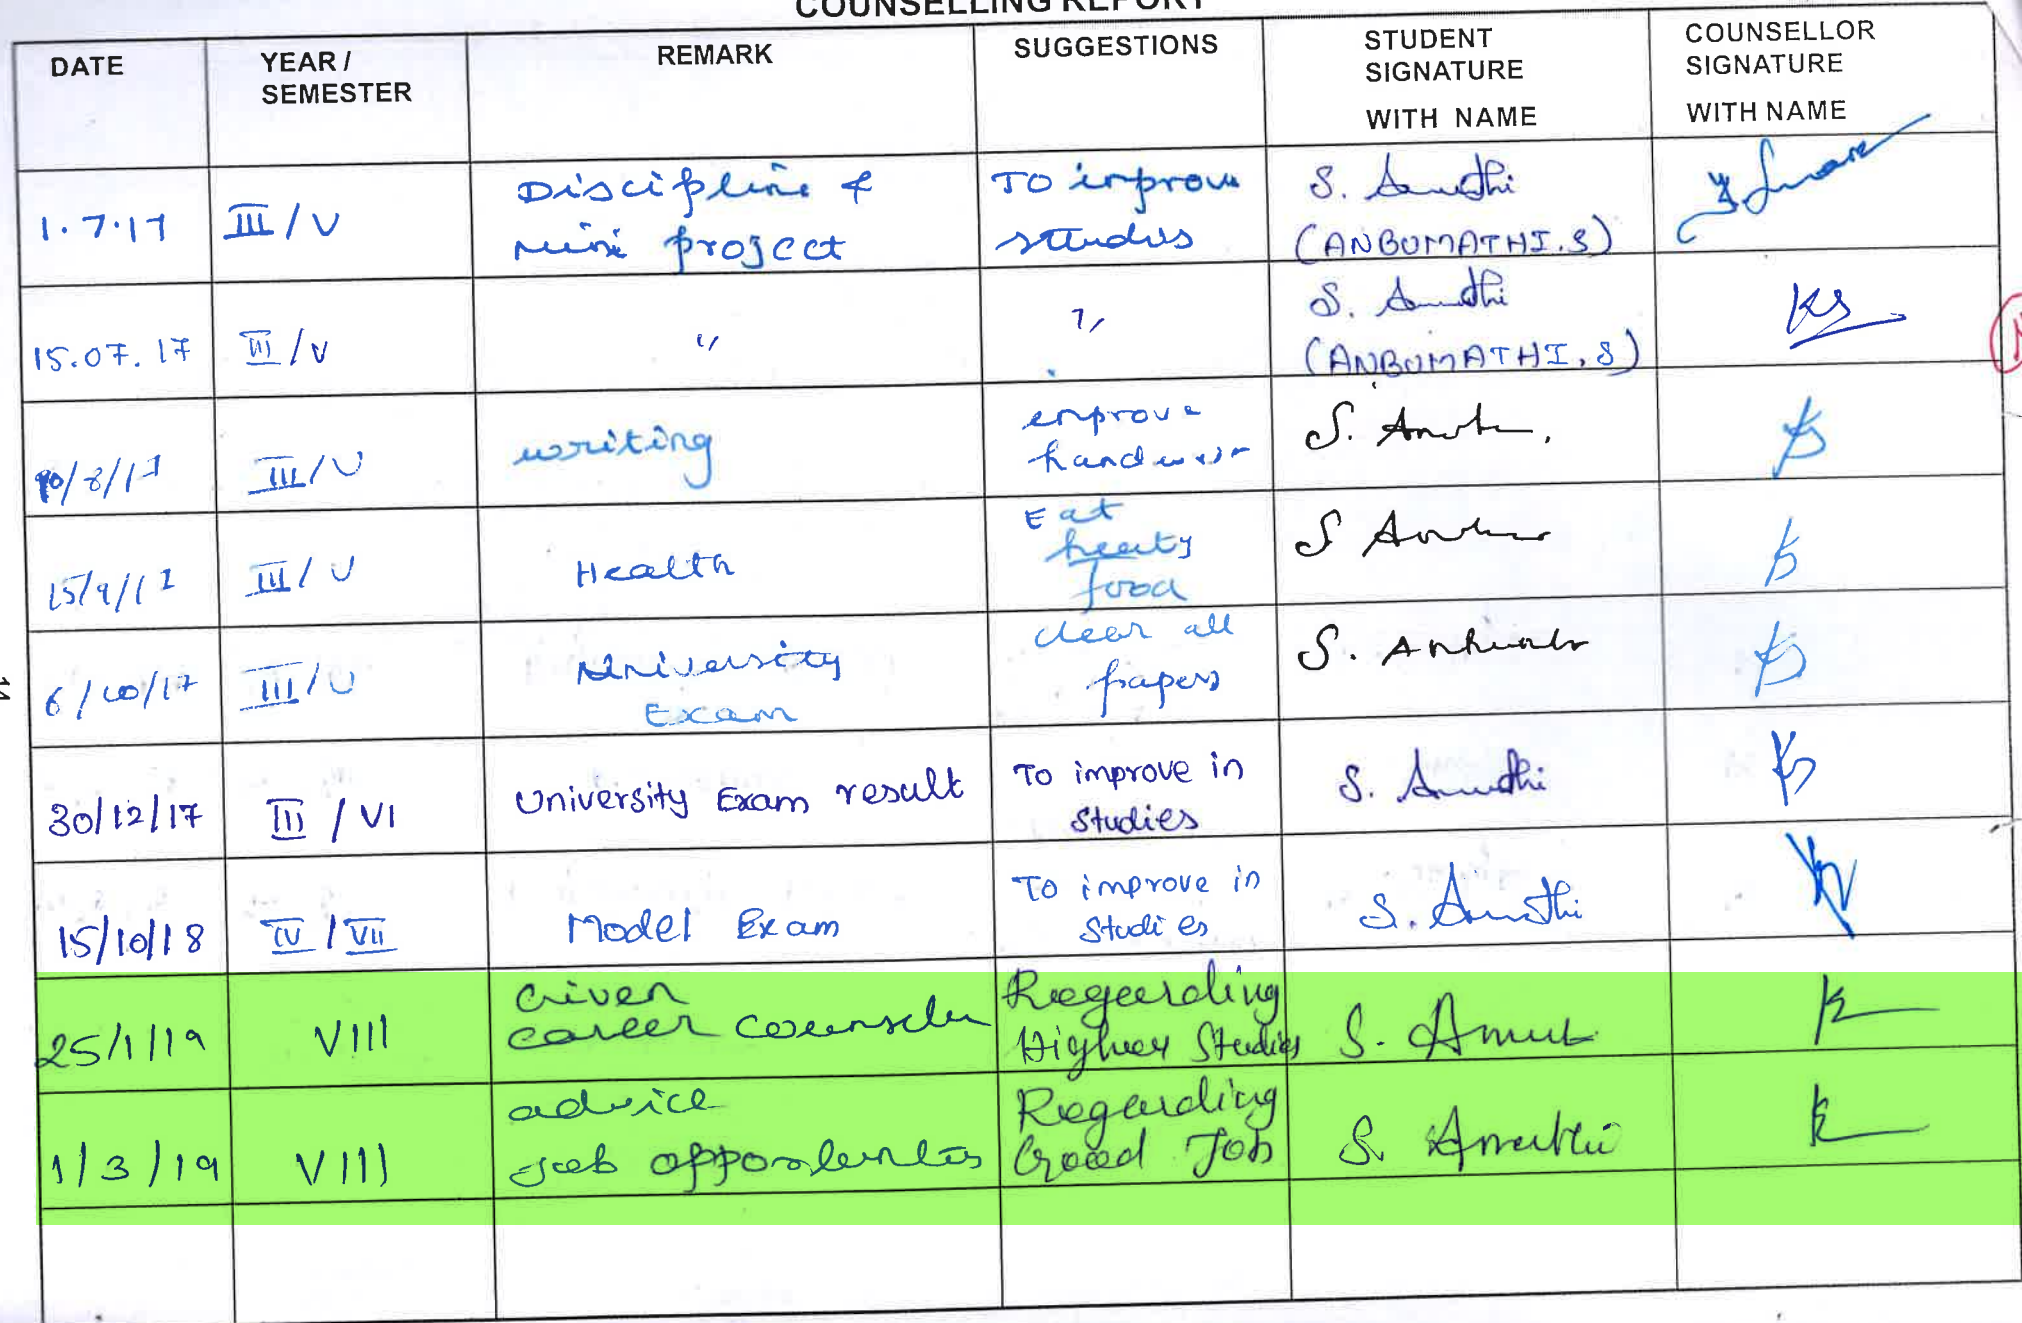 COUNSELLING REPORT
DATE
YEAR /
SEMESTER
REMARK
SUGGESTIONS
STUDENT
SIGNATURE
WITH NAME
COUNSELLOR
SIGNATURE
WITH NAME
1.7.17
III/V
Discipline &
mini project
TO improve
studies
S.
(ANBUMATHI.S)
15.07.17
III/V
"
"
S.
(ANBUMATHI.S)
/8/17
III/V
writing
improve
S.
15/9/17
III/V
Health
Eat
food
S
6/10/17
III/V
University
Exam
clear all
papers
S.
30/12/17
III / VI
University Exam result
To improve in
Studies
S.
15/10/18
IV / VII
Model Exam
To improve in
Studies
S.
25/1/19
VIII
Given
career
Regarding
Higher Studies
S.
1/3/19
VIII
advice
Job
Regarding
Good Job
S.